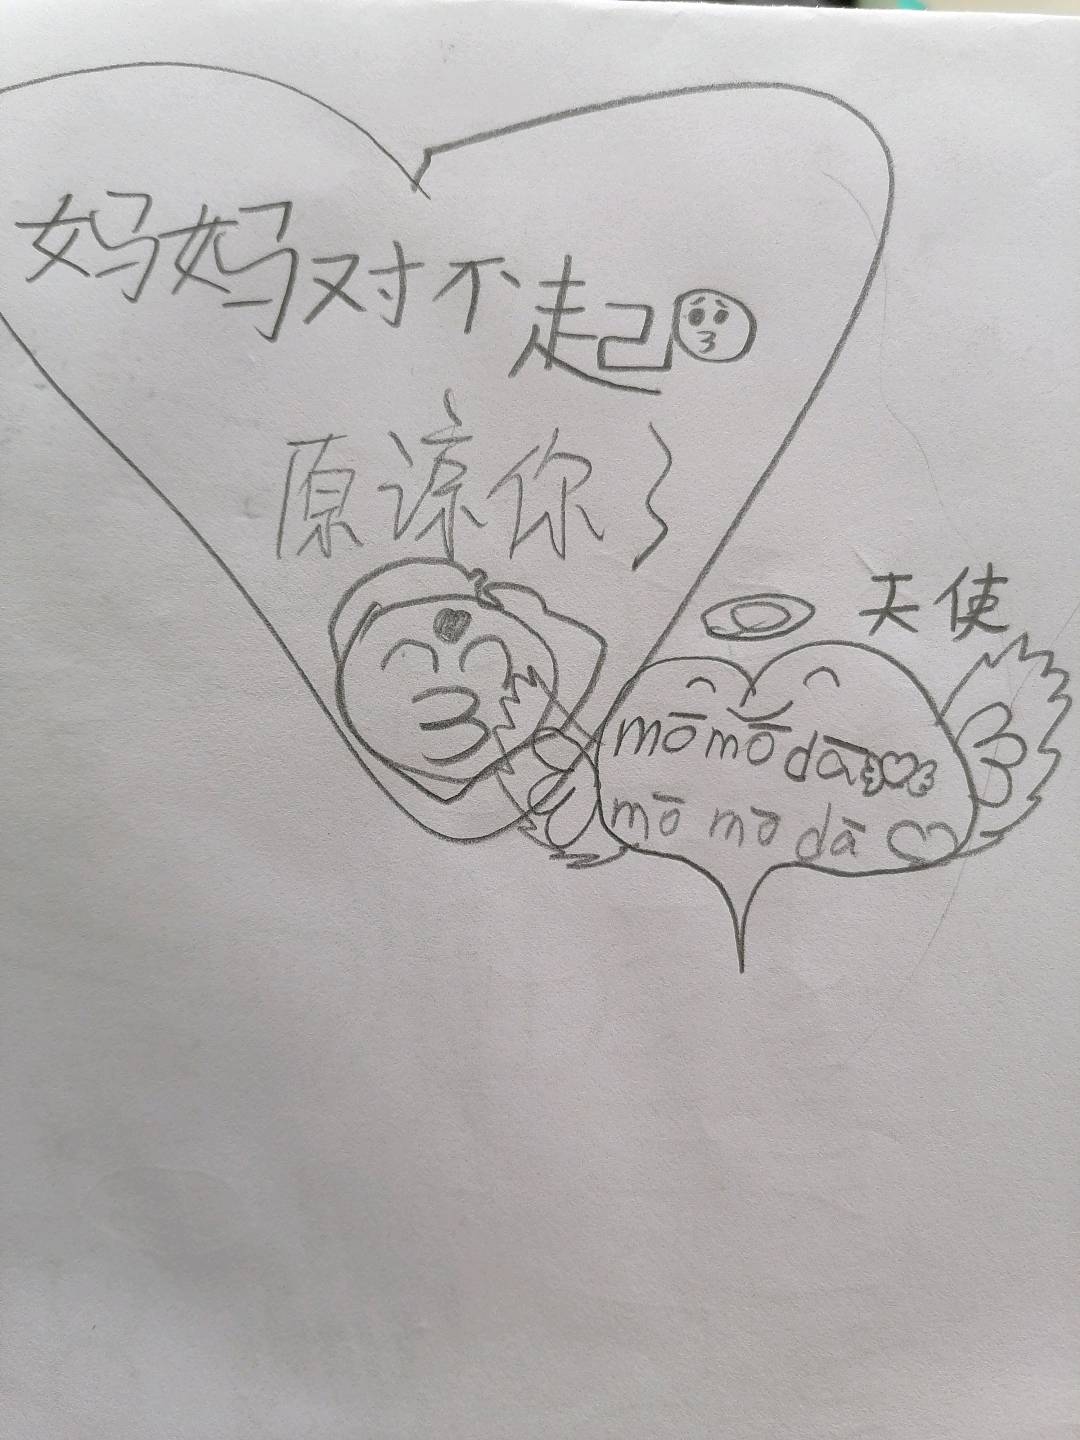 妈妈对不起
原谅你了
天使
mō mō dā
mō mō dā